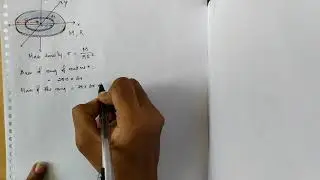 y
M, R
Mass density, σ = M/πR²
Area of ring of radius r
= 2πr × dr
Mass of the ring = 2πr dr